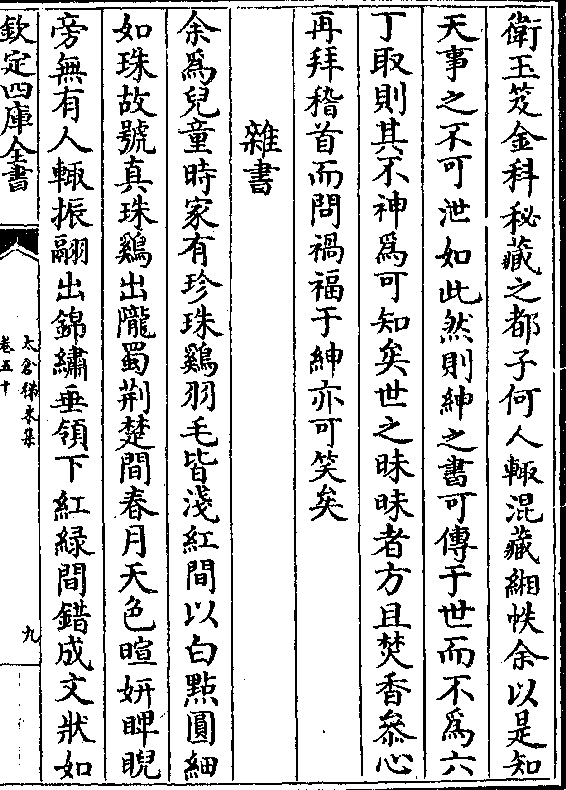 衛玉笈金科秘藏之都子何人輙混藏緗帙余以是知
天事之不可泄如此然則紳之書可傳于世而不為六
丁取則其不神為可知矣世之昧昧者方且焚香叅心
再拜稽首而問禍福于紳亦可笑矣
雜書
余為兒童時家有珍珠鷄羽毛皆淺紅間以白點圓細
如珠故號真珠鷄出隴蜀荆楚間春月天色暄妍睥睨
旁無有人輙振翮出錦繡垂領下紅緑間錯成文狀如
欽定四庫全書
太倉稊米集
卷五十
九